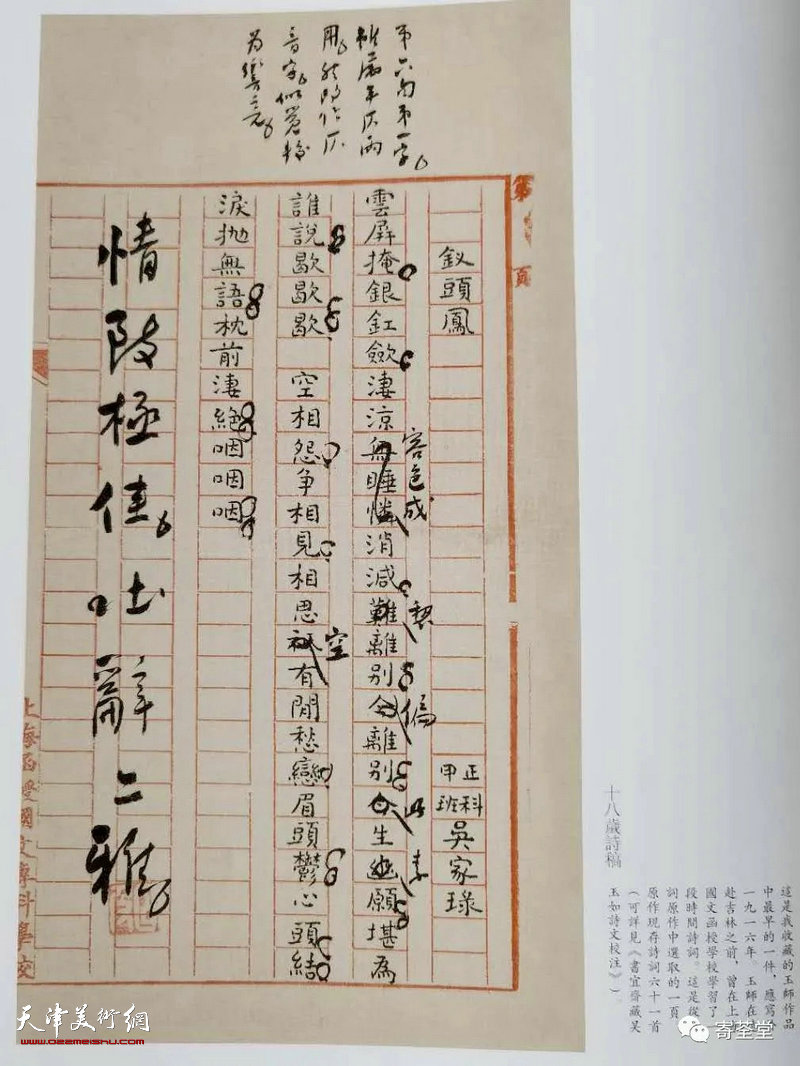 第六句第一字
為響亮
第 頁
釵頭鳳
正科
甲班
吳家琭
雲屏掩銀釭歛淒涼無睡憐消減難離別今離別今生幽願堪為
容色成
契
偏
此
素
誰說歇歇歇 空相怨爭相見相思祇有閒愁戀眉頭鬱心頭結
空
淚拋無語枕前淒絕咽咽咽
情致極佳吐辭亦雅
上海函授國文專科學校
十八歲詩稿
這是我收藏的玉師作品
中最早的一件，應寫
一九一六年，玉師在
赴吉林之前，曾在上
國文函授學校學習了
段時間詩詞。這是從
詞原作中選取的一頁
原作現存詩詞六十一首
（可詳見《書宜齋藏吳
玉如詩文校注》）。
天津美術網
www.022meishu.com
寄荃堂